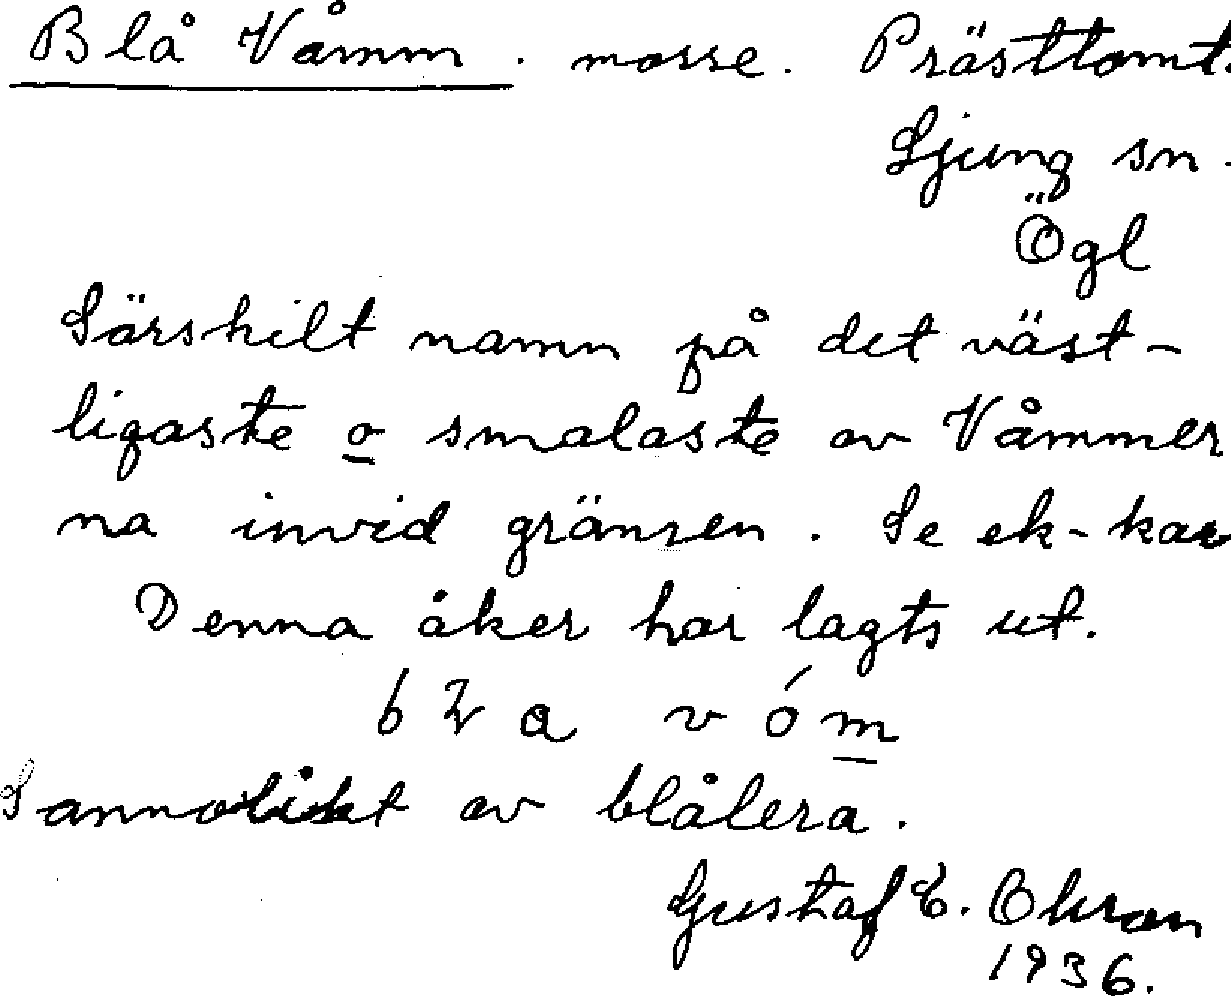 Blå Våmm. mosse. Prästtomt.
Ljung sn.
Ögl
Särskilt namn på det väst-
ligaste o smalaste av Våmmer
na invid gränsen. Se ek-kar
Denna åker har lagts ut.
av blålera.
Gustaf E.
1936.